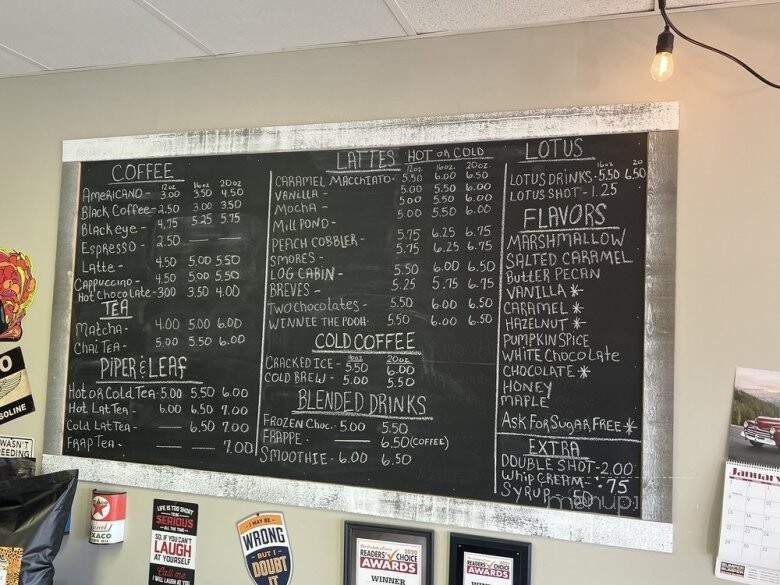 COFFEE
12oz 16oz 20oz
AMERICANO - 3.00 3.50 4.50
Black Coffee - 2.50 3.00 3.50
Blackeye - 4.75 5.25 5.75
Espresso - 2.50 — —
Latte - 4.50 5.00 5.50
Cappuccino - 4.50 5.00 5.50
Hot Chocolate - 3.00 3.50 4.00
TEA
Matcha - 4.00 5.00 6.00
Chai Tea - 5.00 5.50 6.00
PiPER & LEAF
Hot or Cold Tea - 5.00 5.50 6.00
Hot Lat Tea - 6.00 6.50 7.00
Cold Lat Tea - — 6.50 7.00
Frap Tea - — 7.00
LATTES HOT OR COLD
12oz 16oz 20oz
CARAMEL MACCHIATO - 5.50 6.00 6.50
VANILLA - 5.00 5.50 6.00
MOCHA - 5.00 5.50 6.00
Mill POND - 5.00 5.50 6.00
PEACH COBBLER - 5.75 6.25 6.75
SMORES - 5.75 6.25 6.75
LOG CABIN - 5.50 6.00 6.50
BREVES - 5.25 5.75 6.75
TWO Chocolates - 5.50 6.00 6.50
WINNIE THE POOH - 5.50 6.00 6.50
COLD COFFEE
16oz 20oz
CRACKED ICE - 5.50 6.00
COLD BREW - 5.00 5.50
BLENDED DRINKS
FROZEN Choc. - 5.00 5.50
FRAPPE - — 6.50 (COFFEE)
SMOOTHIE - 6.00 6.50
LOTUS
16oz 20
LOTUS DRINKS - 5.50 6.50
LOTUS SHOT - 1.25
FLAVORS
MARSHMALLOW
SALTED CARAMEL
Butter PECAN
VANILLA *
CARAMEL *
HAZELNUT *
PUMPKIN SPICE
WHITE Chocolate
CHOCOLATE *
HONEY
MAPLE
ASK FOR SUGAR FREE *
EXTRA
DOUBLE SHOT - 2.00
Whip CREAM - .75
SYRUP - .50
menupix
OLINE
WASN'T
EEDING
TEXACO
LIFE IS TOO SHORT
SERIOUS
ALL THE TIME
SO, IF YOU CAN'T
LAUGH
AT YOURSELF
Call me
I WILL LAUGH AT YOU
I MAY BE
WRONG
BUT I
DOUBT
IT
2020
READERS' CHOICE
AWARDS
WINNER
READERS' CHOICE
AWARDS
January